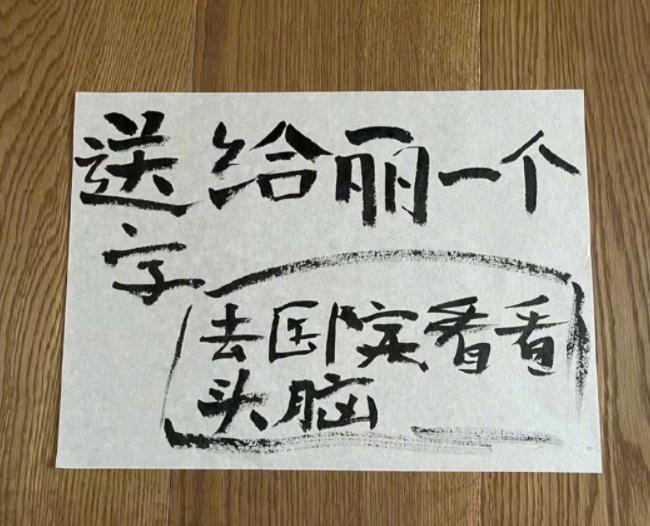 送给丽一个
字
去医院看看
头脑